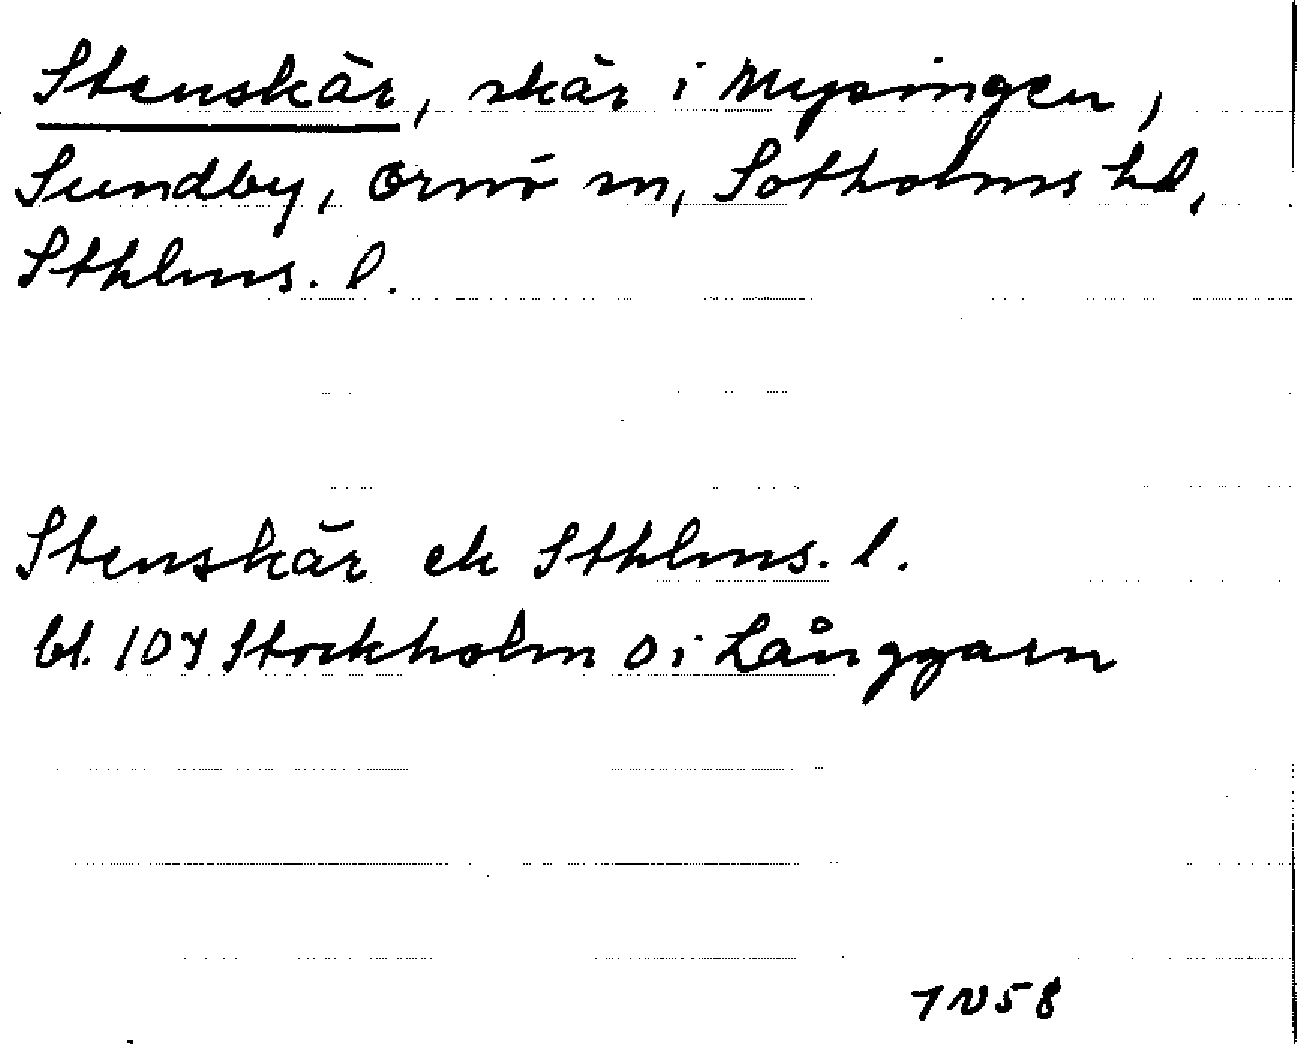 Stenskär, skär i Mysingen,
Sundby, Ornö sn, Sotholms hd,
Sthlms. l.
Stenskär ek Sthlms. l.
bl. 107 Stockholm O i Långgarn
TN58